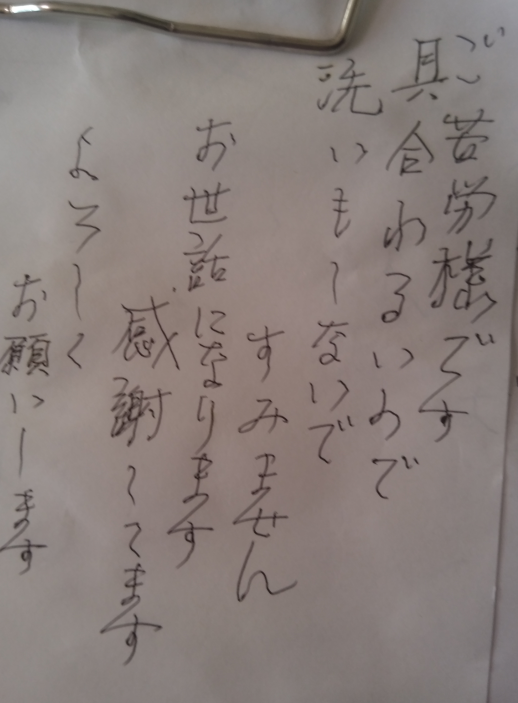 ご苦労様です
具合わるいので
洗いもしないで
すみません
お世話になります
感謝してます
よろしく
お願いします